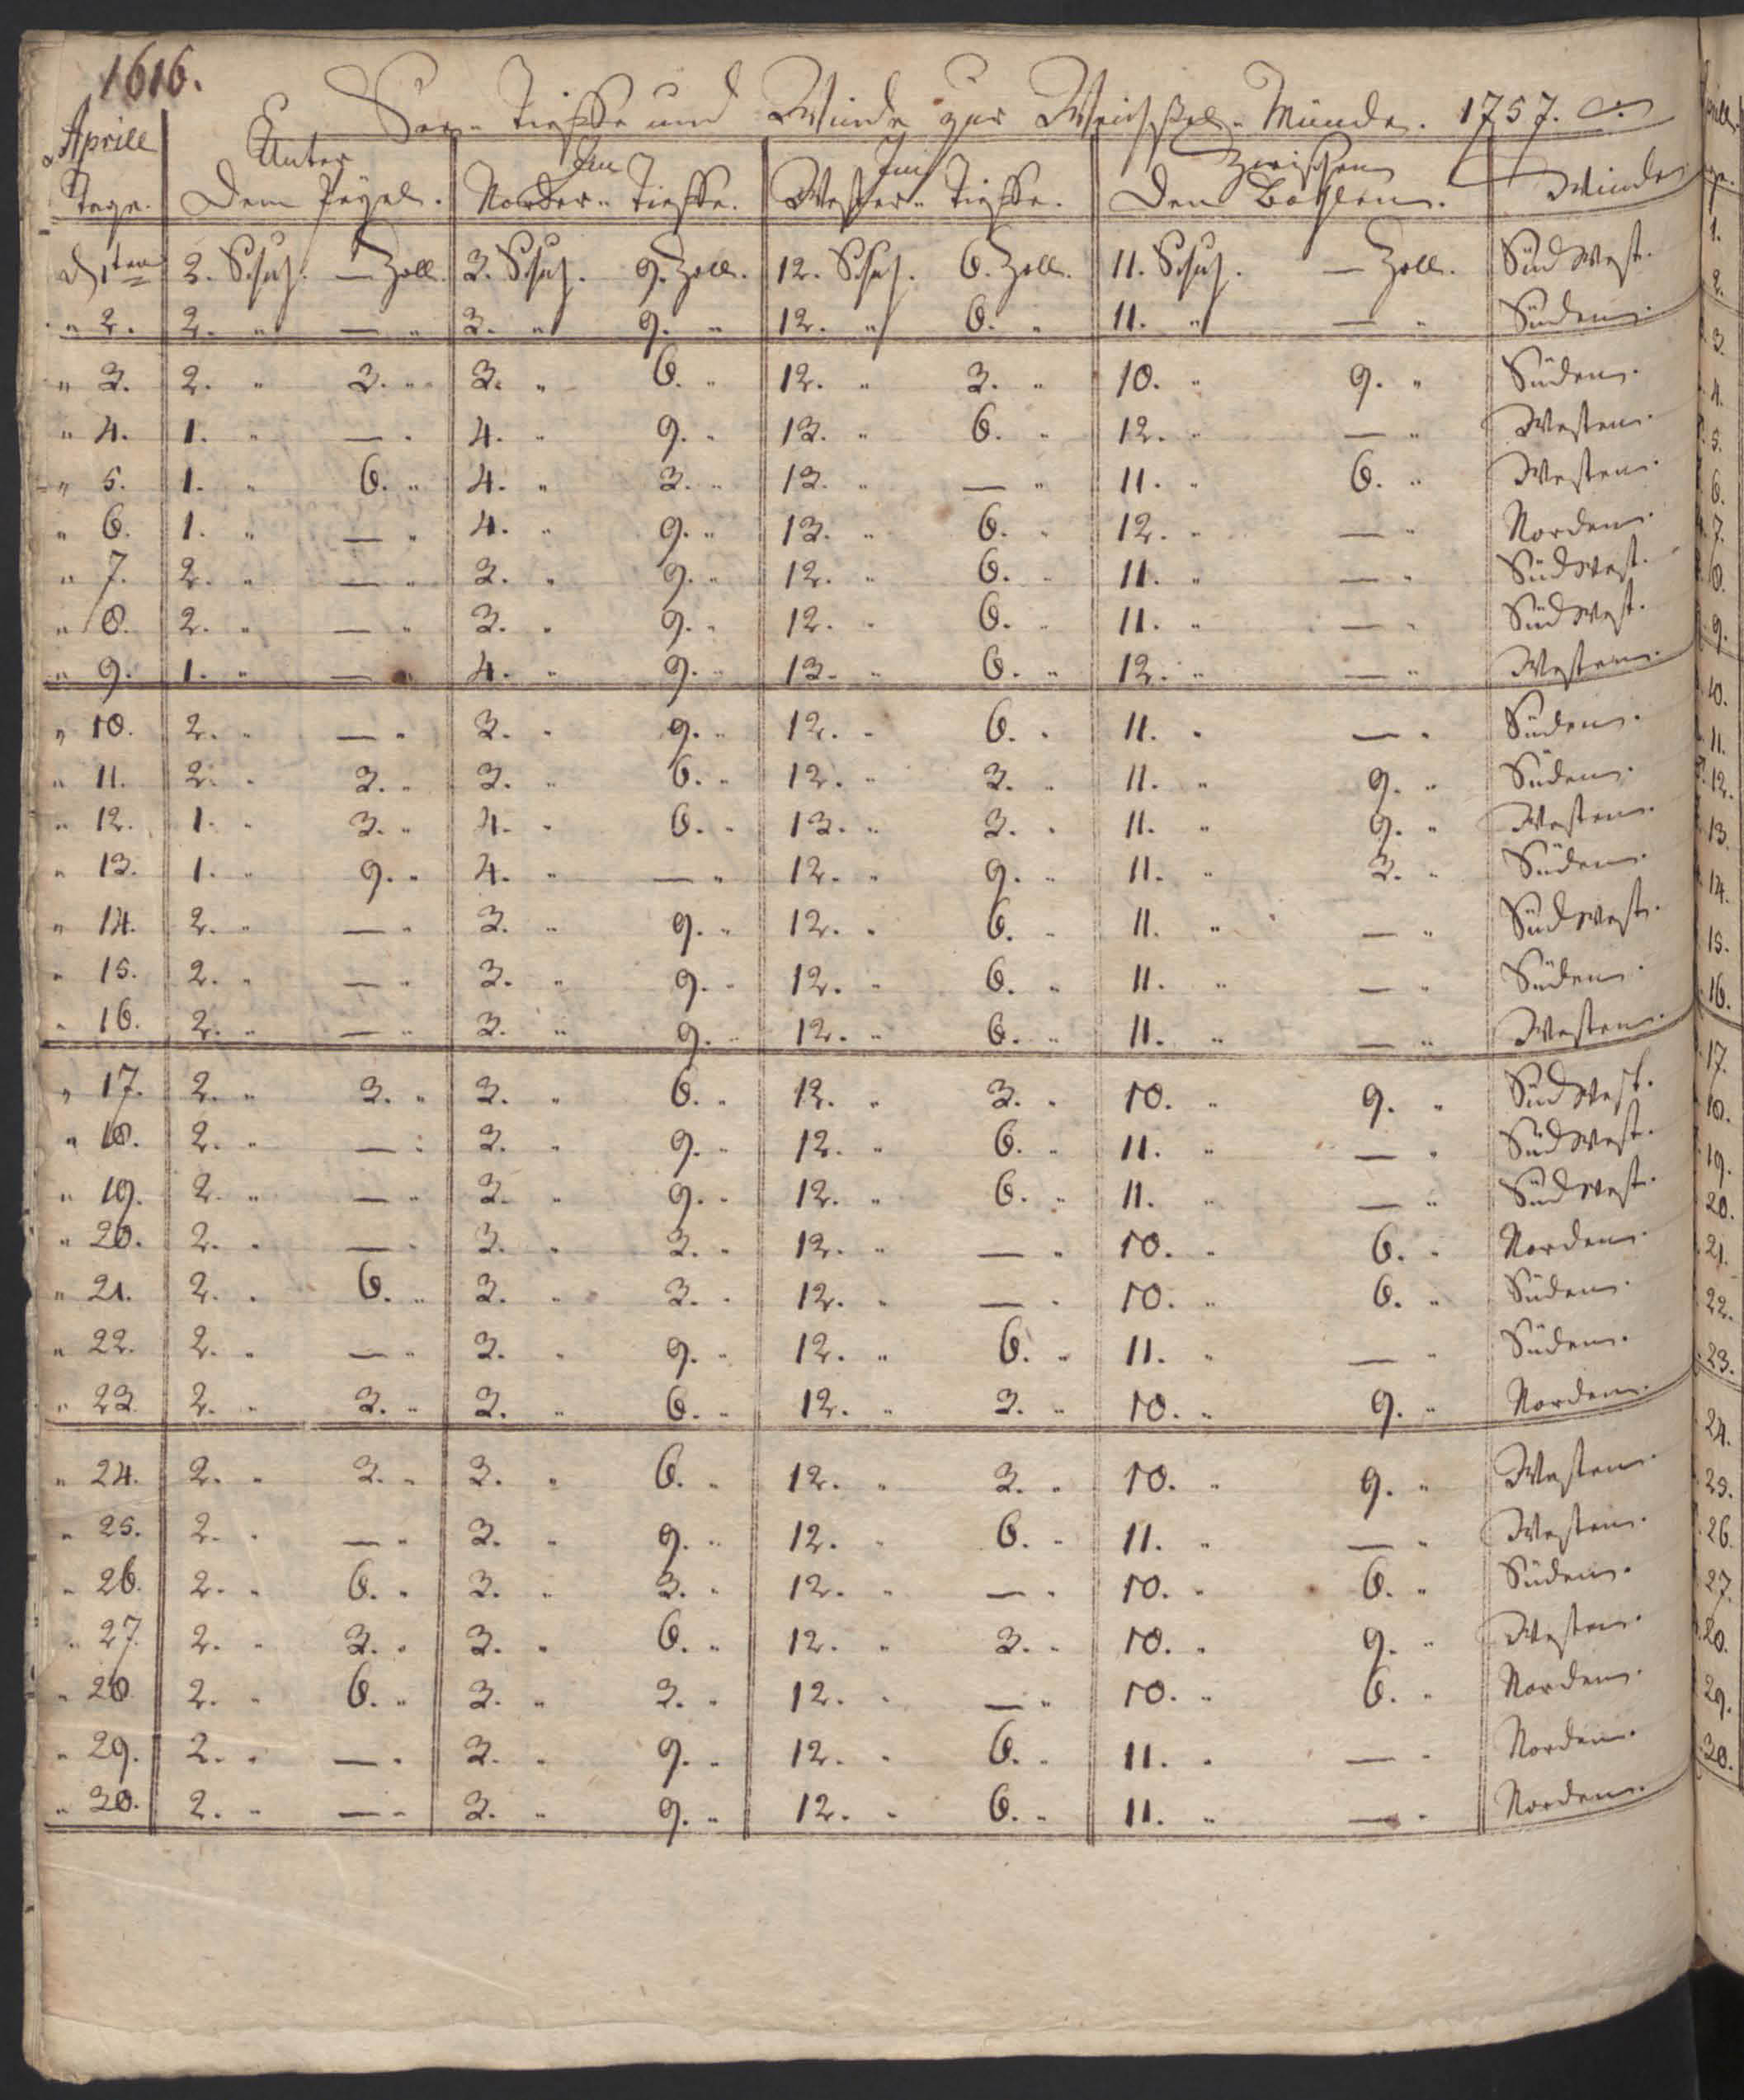 1616.
See- Tieffe und Winde zur Weichsel- Münde. 1757.
Aprill Unter Im Im Zwischen
Tage. Dem Pegel. Norder- Tieffe. Wester- Tieffe. Den Bohlen. Winde
d 1ten 2. Schuh. — Zoll. 3. Schuh. 9. Zoll. 12. Schuh. 6. Zoll. 11. Schuh. — Zoll. Süd West.
" 2. 2. " — " 3. " 9. " 12. " 6. " 11. " — " Süden.
" 3. 2. " 3. " 3. " 6. " 12. " 3. " 10. " 9. " Süden.
" 4. 1. " — " 4. " 9. " 13. " 6. " 12. " — " Westen.
" 5. 1. " 6. " 4. " 3. " 13. " — " 11. " 6. " Westen.
" 6. 1. " — " 4. " 9. " 13. " 6. " 12. " — " Norden.
" 7. 2. " — " 3. " 9. " 12. " 6. " 11. " — " Südwest.
" 8. 2. " — " 3. " 9. " 12. " 6. " 11. " — " Südwest.
" 9. 1. " — " 4. " 9. " 13. " 6. " 12. " — " Westen.
" 10. 2. " — " 3. " 9. " 12. " 6. " 11. " — " Süden.
" 11. 2. " 3. " 3. " 6. " 12. " 3. " 11. " 9. " Süden.
" 12. 1. " 3. " 4. " 6. " 13. " 3. " 11. " 9. " Westen.
" 13. 1. " 9. " 4. " — " 12. " 9. " 11. " 3. " Süden.
" 14. 2. " — " 3. " 9. " 12. " 6. " 11. " — " Südwest.
" 15. 2. " — " 3. " 9. " 12. " 6. " 11. " — " Süden.
" 16. 2. " — " 3. " 9. " 12. " 6. " 11. " — " Westen.
" 17. 2. " 3. " 3. " 6. " 12. " 3. " 10. " 9. " Süd West.
" 18. 2. " — " 3. " 9. " 12. " 6. " 11. " — " Südwest.
" 19. 2. " — " 3. " 9. " 12. " 6. " 11. " — " Südwest.
" 20. 2. " — " 3. " 3. " 12. " — " 10. " 6. " Norden.
" 21. 2. " 6. " 3. " 3. " 12. " — " 10. " 6. " Süden.
" 22. 2. " — " 3. " 9. " 12. " 6. " 11. " — " Süden.
" 23. 2. " 3. " 3. " 6. " 12. " 3. " 10. " 9. " Norden.
" 24. 2. " 3. " 3. " 6. " 12. " 3. " 10. " 9. " Westen.
" 25. 2. " — " 3. " 9. " 12. " 6. " 11. " — " Westen.
" 26. 2. " 6. " 3. " 3. " 12. " — " 10. " 6. " Süden.
" 27. 2. " 3. " 3. " 6. " 12. " 3. " 10. " 9. " Westen.
" 28. 2. " 6. " 3. " 3. " 12. " — " 10. " 6. " Norden.
" 29. 2. " — " 3. " 9. " 12. " 6. " 11. " — " Norden.
" 30. 2. " — " 3. " 9. " 12. " 6. " 11. " — " Norden.
1.
2.
3.
4.
5.
6.
7.
8.
9.
10.
11.
12.
13.
14.
15.
16.
17.
18.
19.
20.
21.
22.
23.
24.
25.
26.
27.
28.
29.
30.